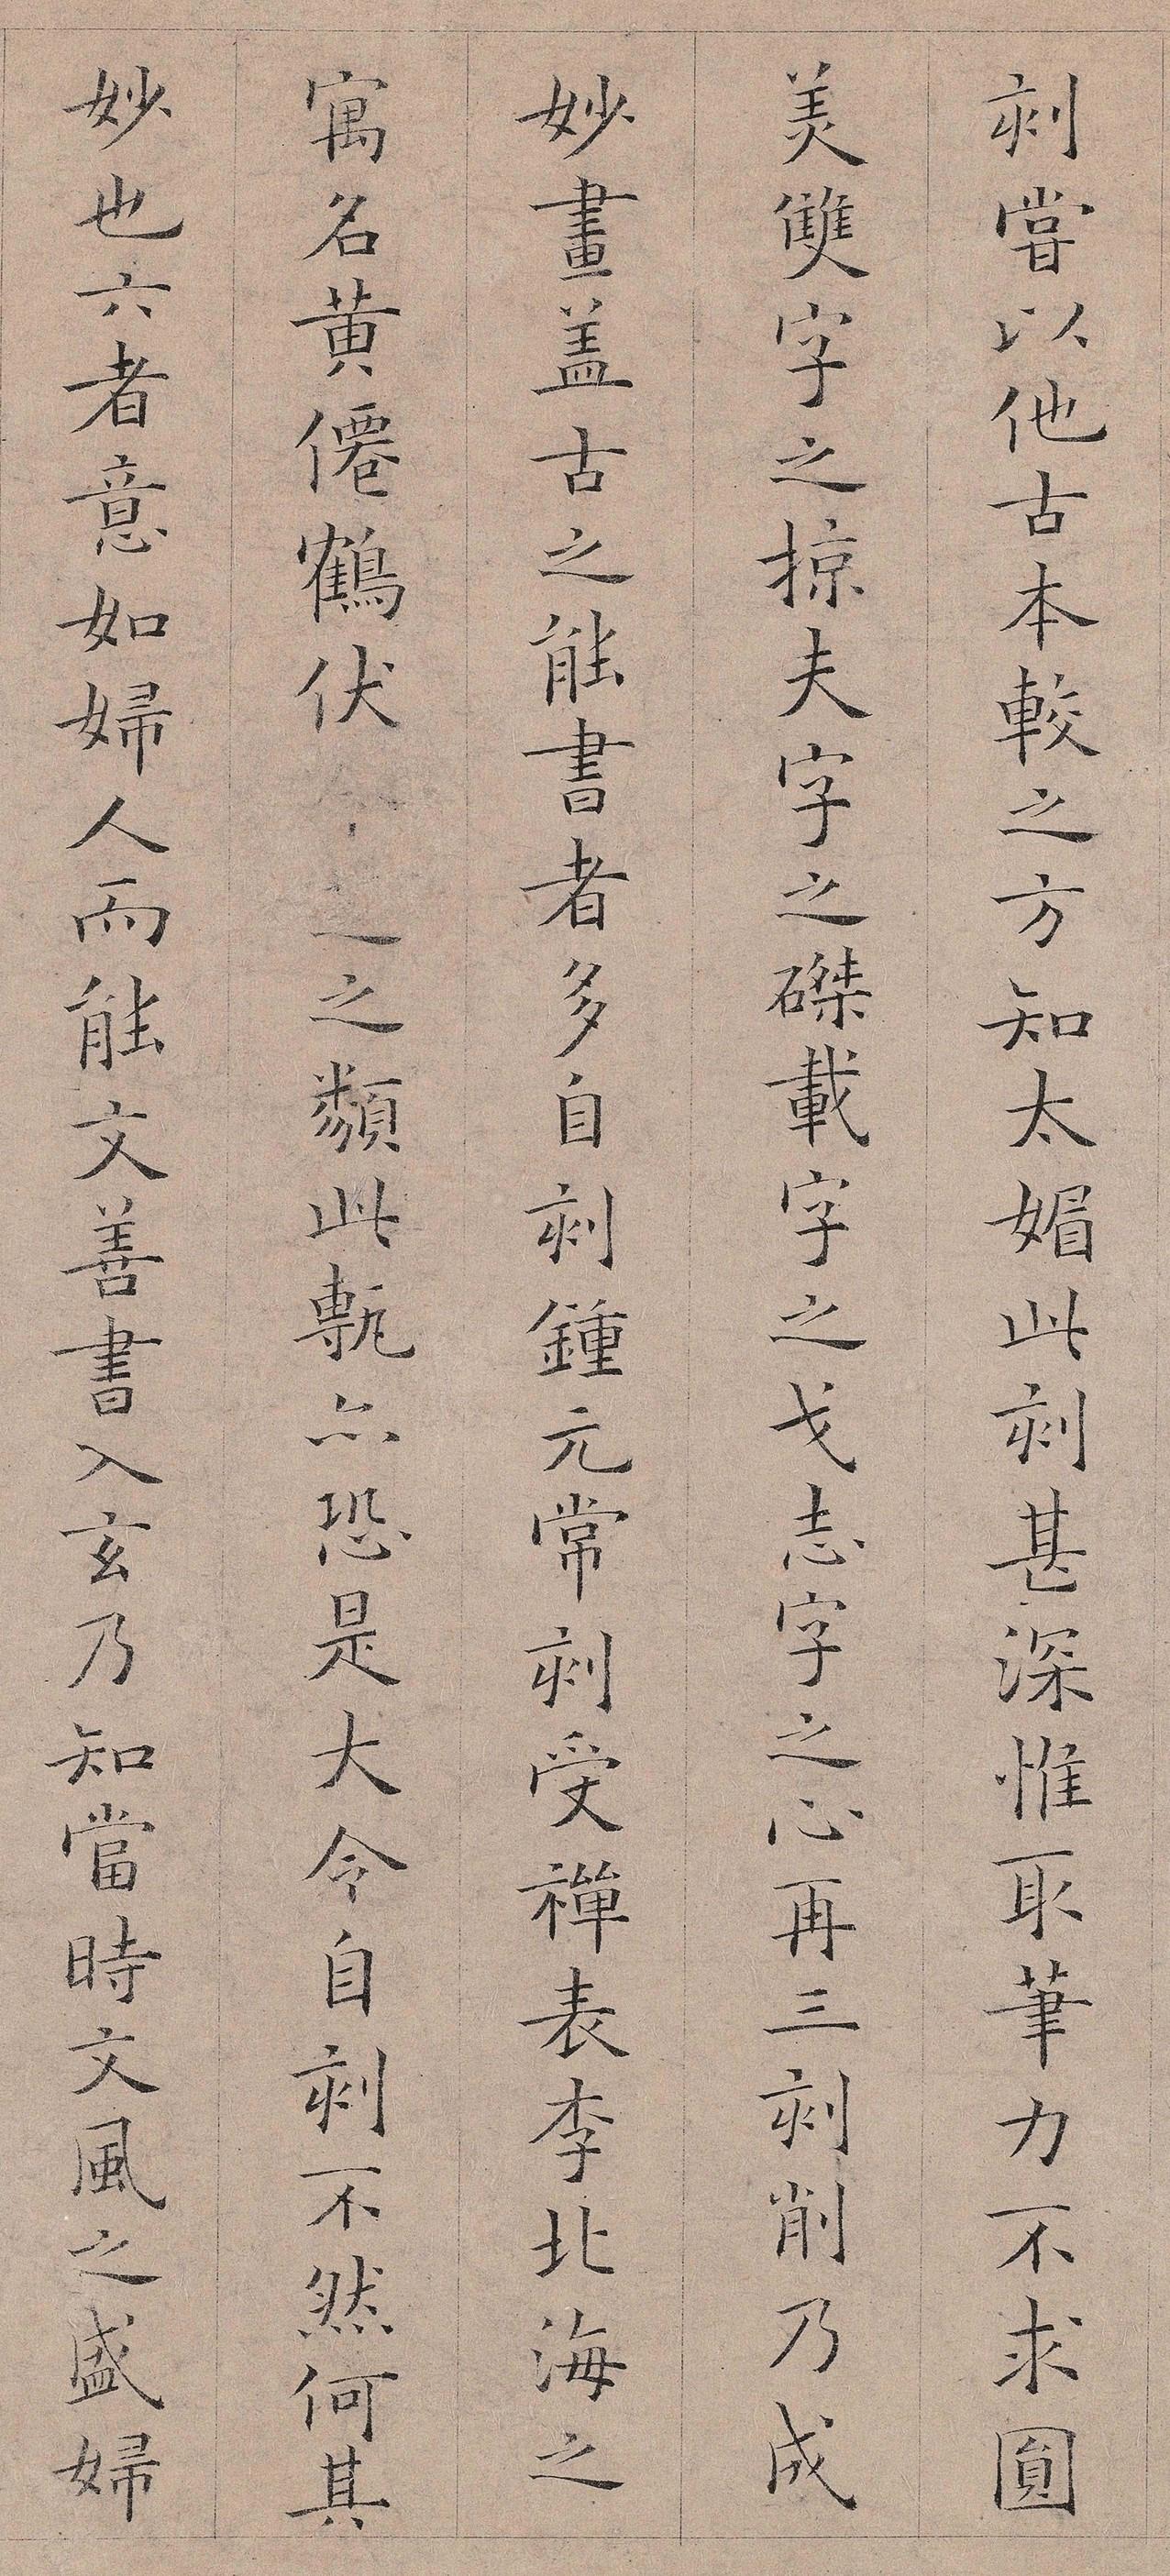 刻嘗以他古本較之方知太媚此刻甚深惟取筆力不求圓
美雙字之掠夫字之磔載字之戈志字之心再三刻削乃成
妙畫盖古之能書者多自刻鍾元常刻受禪表李北海之
寓名黄僊鶴伏之之類此甎亦恐是大令自刻不然何其
妙也六者意如婦人而能文善書入玄乃知當時文風之盛婦